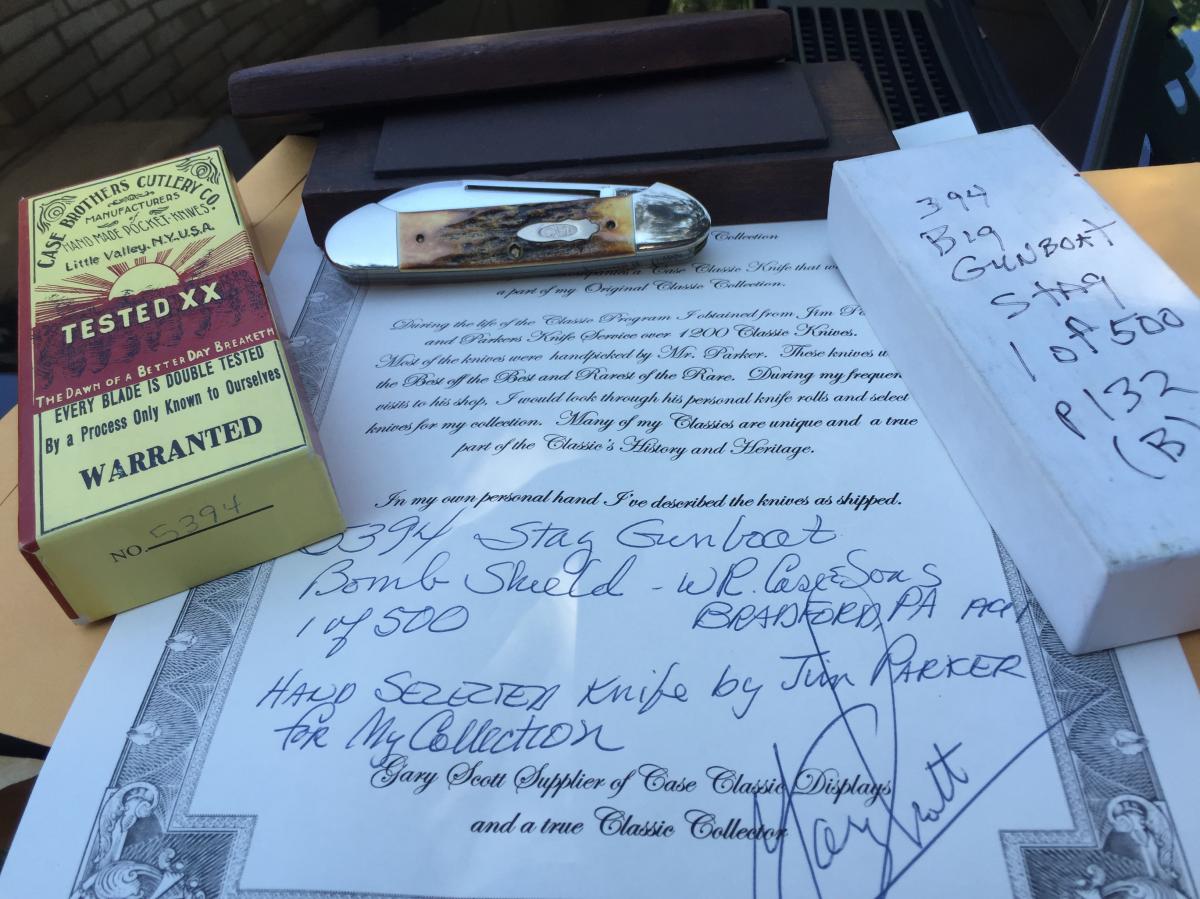 CASE BROTHERS CUTLERY CO.
MANUFACTURERS
of
HAND MADE POCKET-KNIVES.
Little Valley, N.Y. U.S.A.
TESTED XX
THE DAWN OF A BETTER DAY BREAKETH
EVERY BLADE IS DOUBLE TESTED
By a Process Only Known to Ourselves
WARRANTED
NO. 5394
394
Big
GUNBOAT
STAG
1 of 500
P132
(B)
Collection
a Case Classic Knife that
a part of my Original Classic Collection.
During the life of the Classic Program I obtained from Jim
and Parkers Knife Service over 1200 Classic Knives.
Most of the knives were handpicked by Mr. Parker. These knives
the Best off the Best and Rarest of the Rare. During my frequen
visits to his shop, I would look through his personal knife rolls and select
knives for my collection. Many of my Classics are unique and a true
part of the Classic's History and Heritage.
In my own personal hand I've described the knives as shipped.
5394 Stag Gunboat
Bomb Shield - WR. Case & Sons
1 of 500 BRADFORD, PA
HAND SELECTED Knife by Jim PARKER
for My Collection
Gary Scott Supplier of Case Classic Displays
and a true Classic Collector
Gary Scott